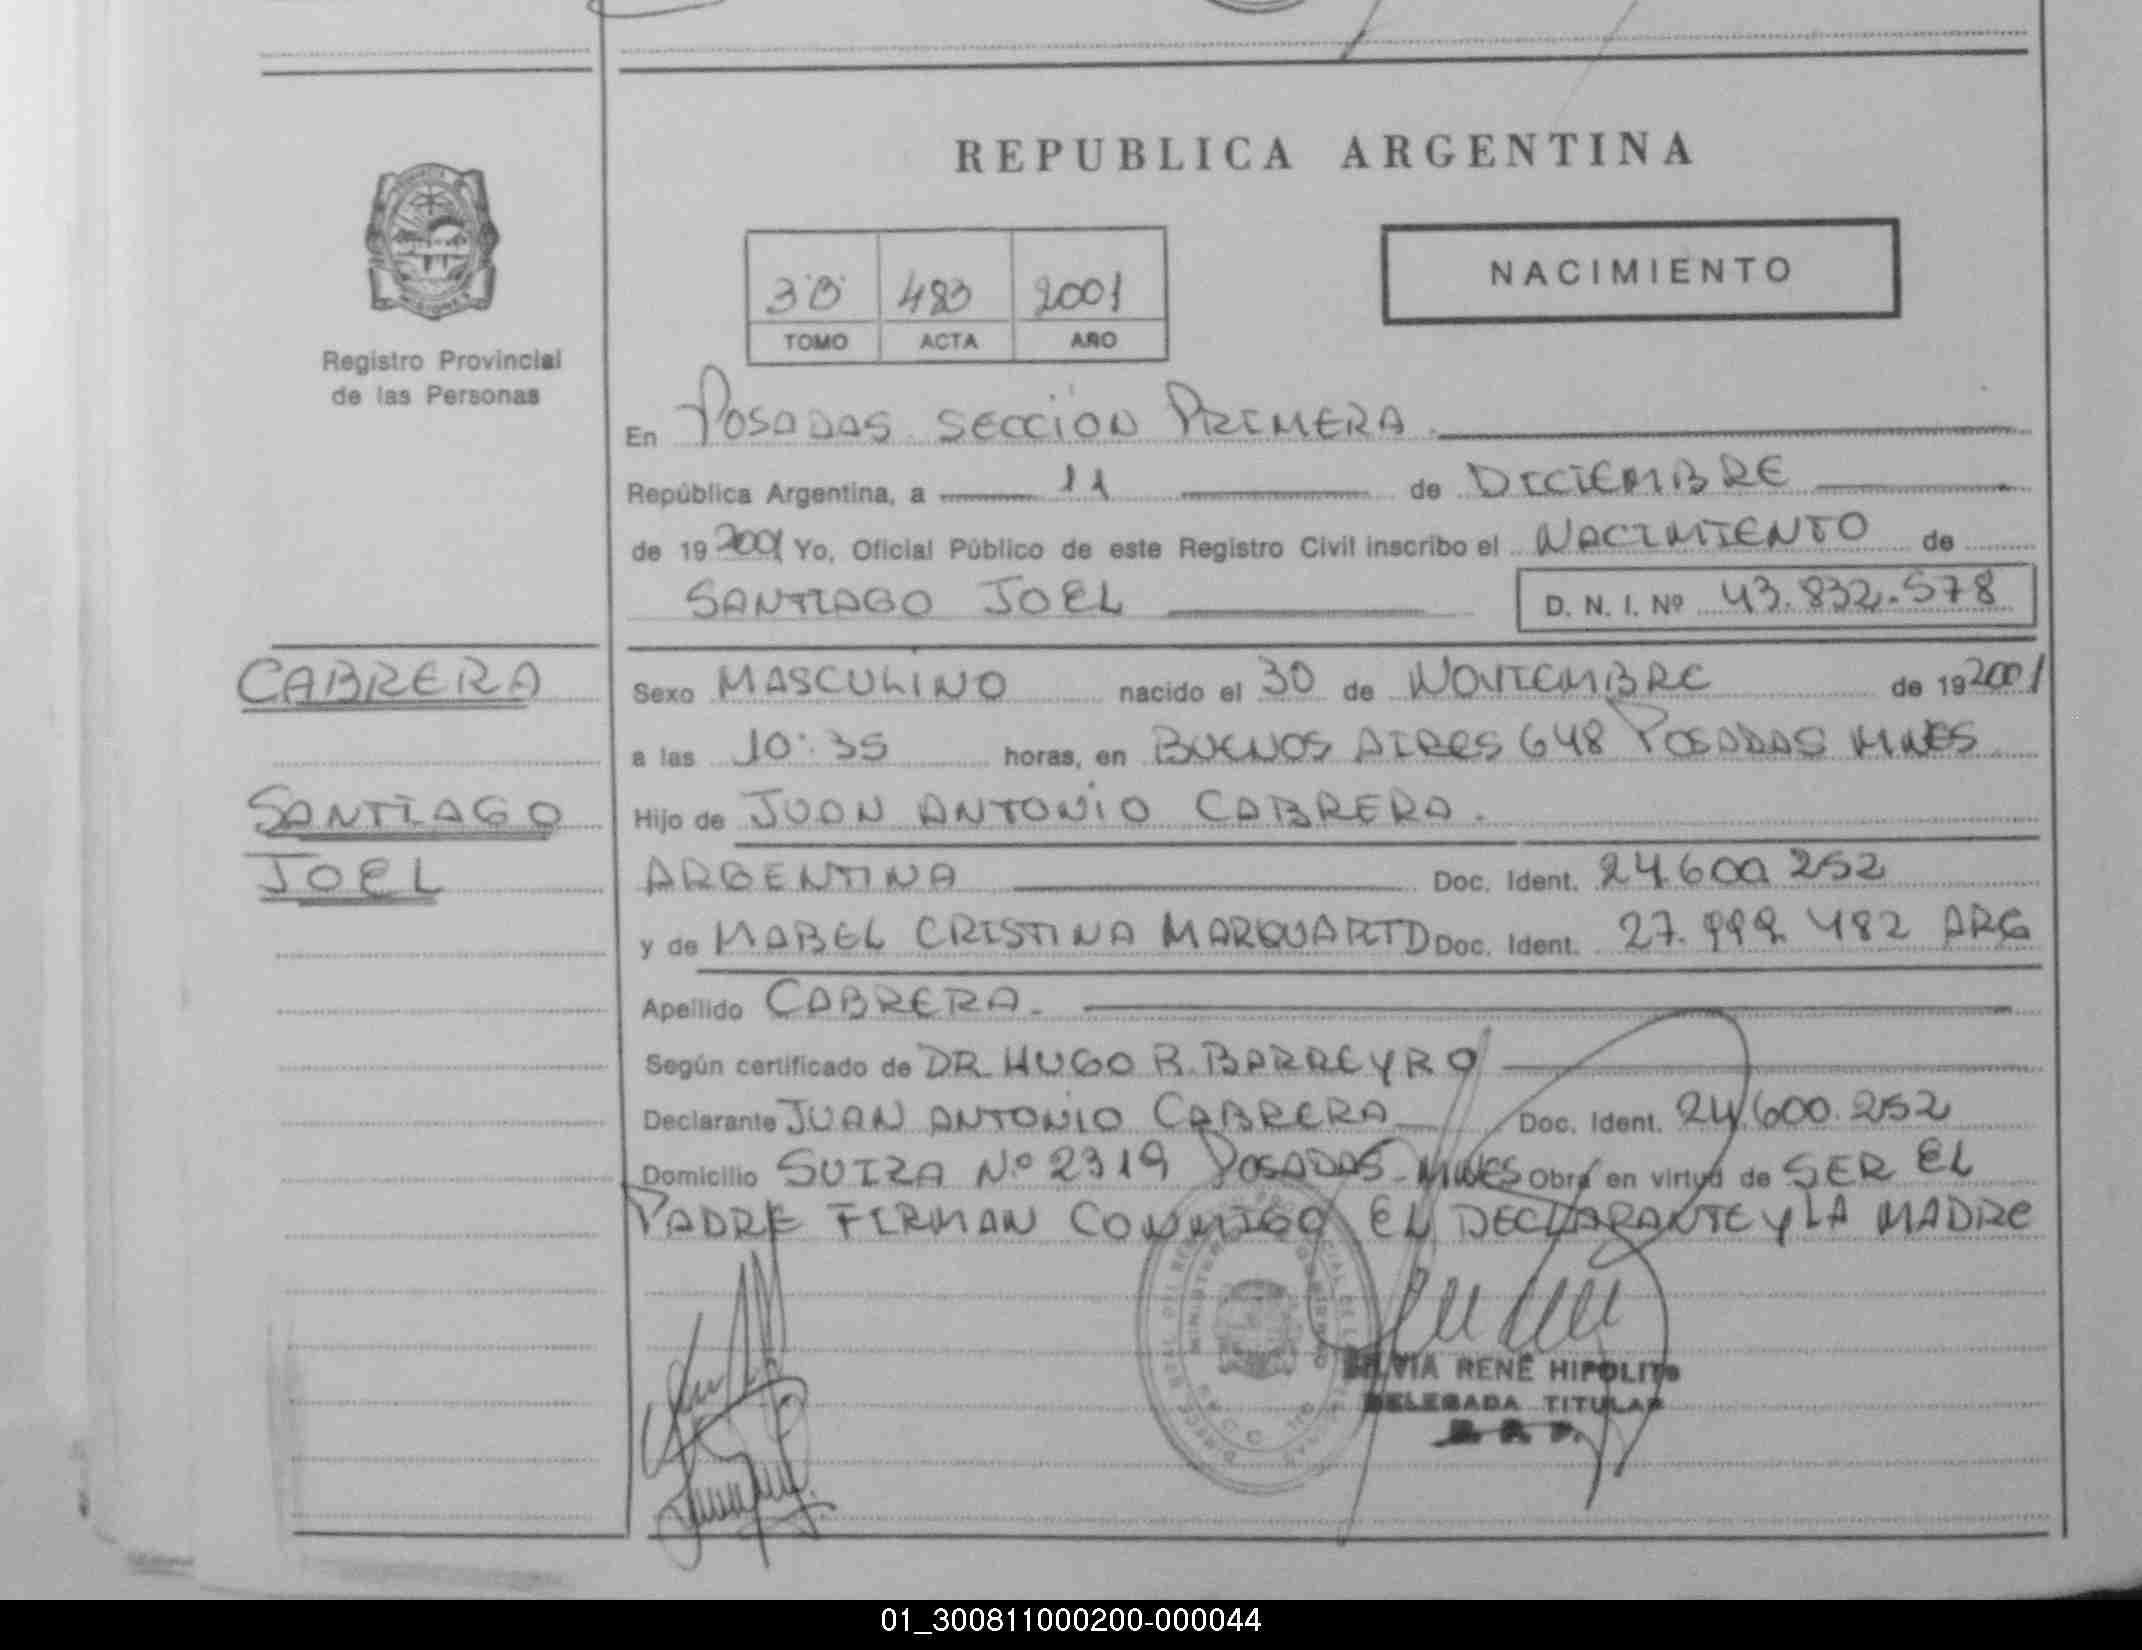 REPUBLICA ARGENTINA
NACIMIENTO
3º B 483 2001
TOMO ACTA AÑO
Registro Provincial
de las Personas
En POSADAS SECCION PRIMERA.
República Argentina, a 11 de DICIEMBRE
de 19 2001 Yo, Oficial Público de este Registro Civil inscribo el NACIMIENTO de
SANTIAGO JOEL D. N. I. Nº 43.832.578
CABRERA
SANTIAGO
JOEL
Sexo MASCULINO nacido el 30 de NOVIEMBRE de 19 2001
a las 10:35 horas, en BUENOS AIRES 648 POSADAS MNES
Hijo de JUAN ANTONIO CABRERA.
ARGENTINA Doc. Ident. 24.600.252
y de MABEL CRISTINA MARQUARTD Doc. Ident. 27.999.482 ARG
Apellido CABRERA.
Según certificado de DR. HUGO R. BARREYRO
Declarante JUAN ANTONIO CABRERA Doc. Ident. 24.600.252
Domicilio SUIZA Nº 2319 POSADAS-MNES Obra en virtud de SER EL
PADRE FIRMAN CONMIGO EL DECLARANTE Y LA MADRE
SILVIA RENÉ HIPOLITO
DELEGADA TITULAR
01_300811000200-000044